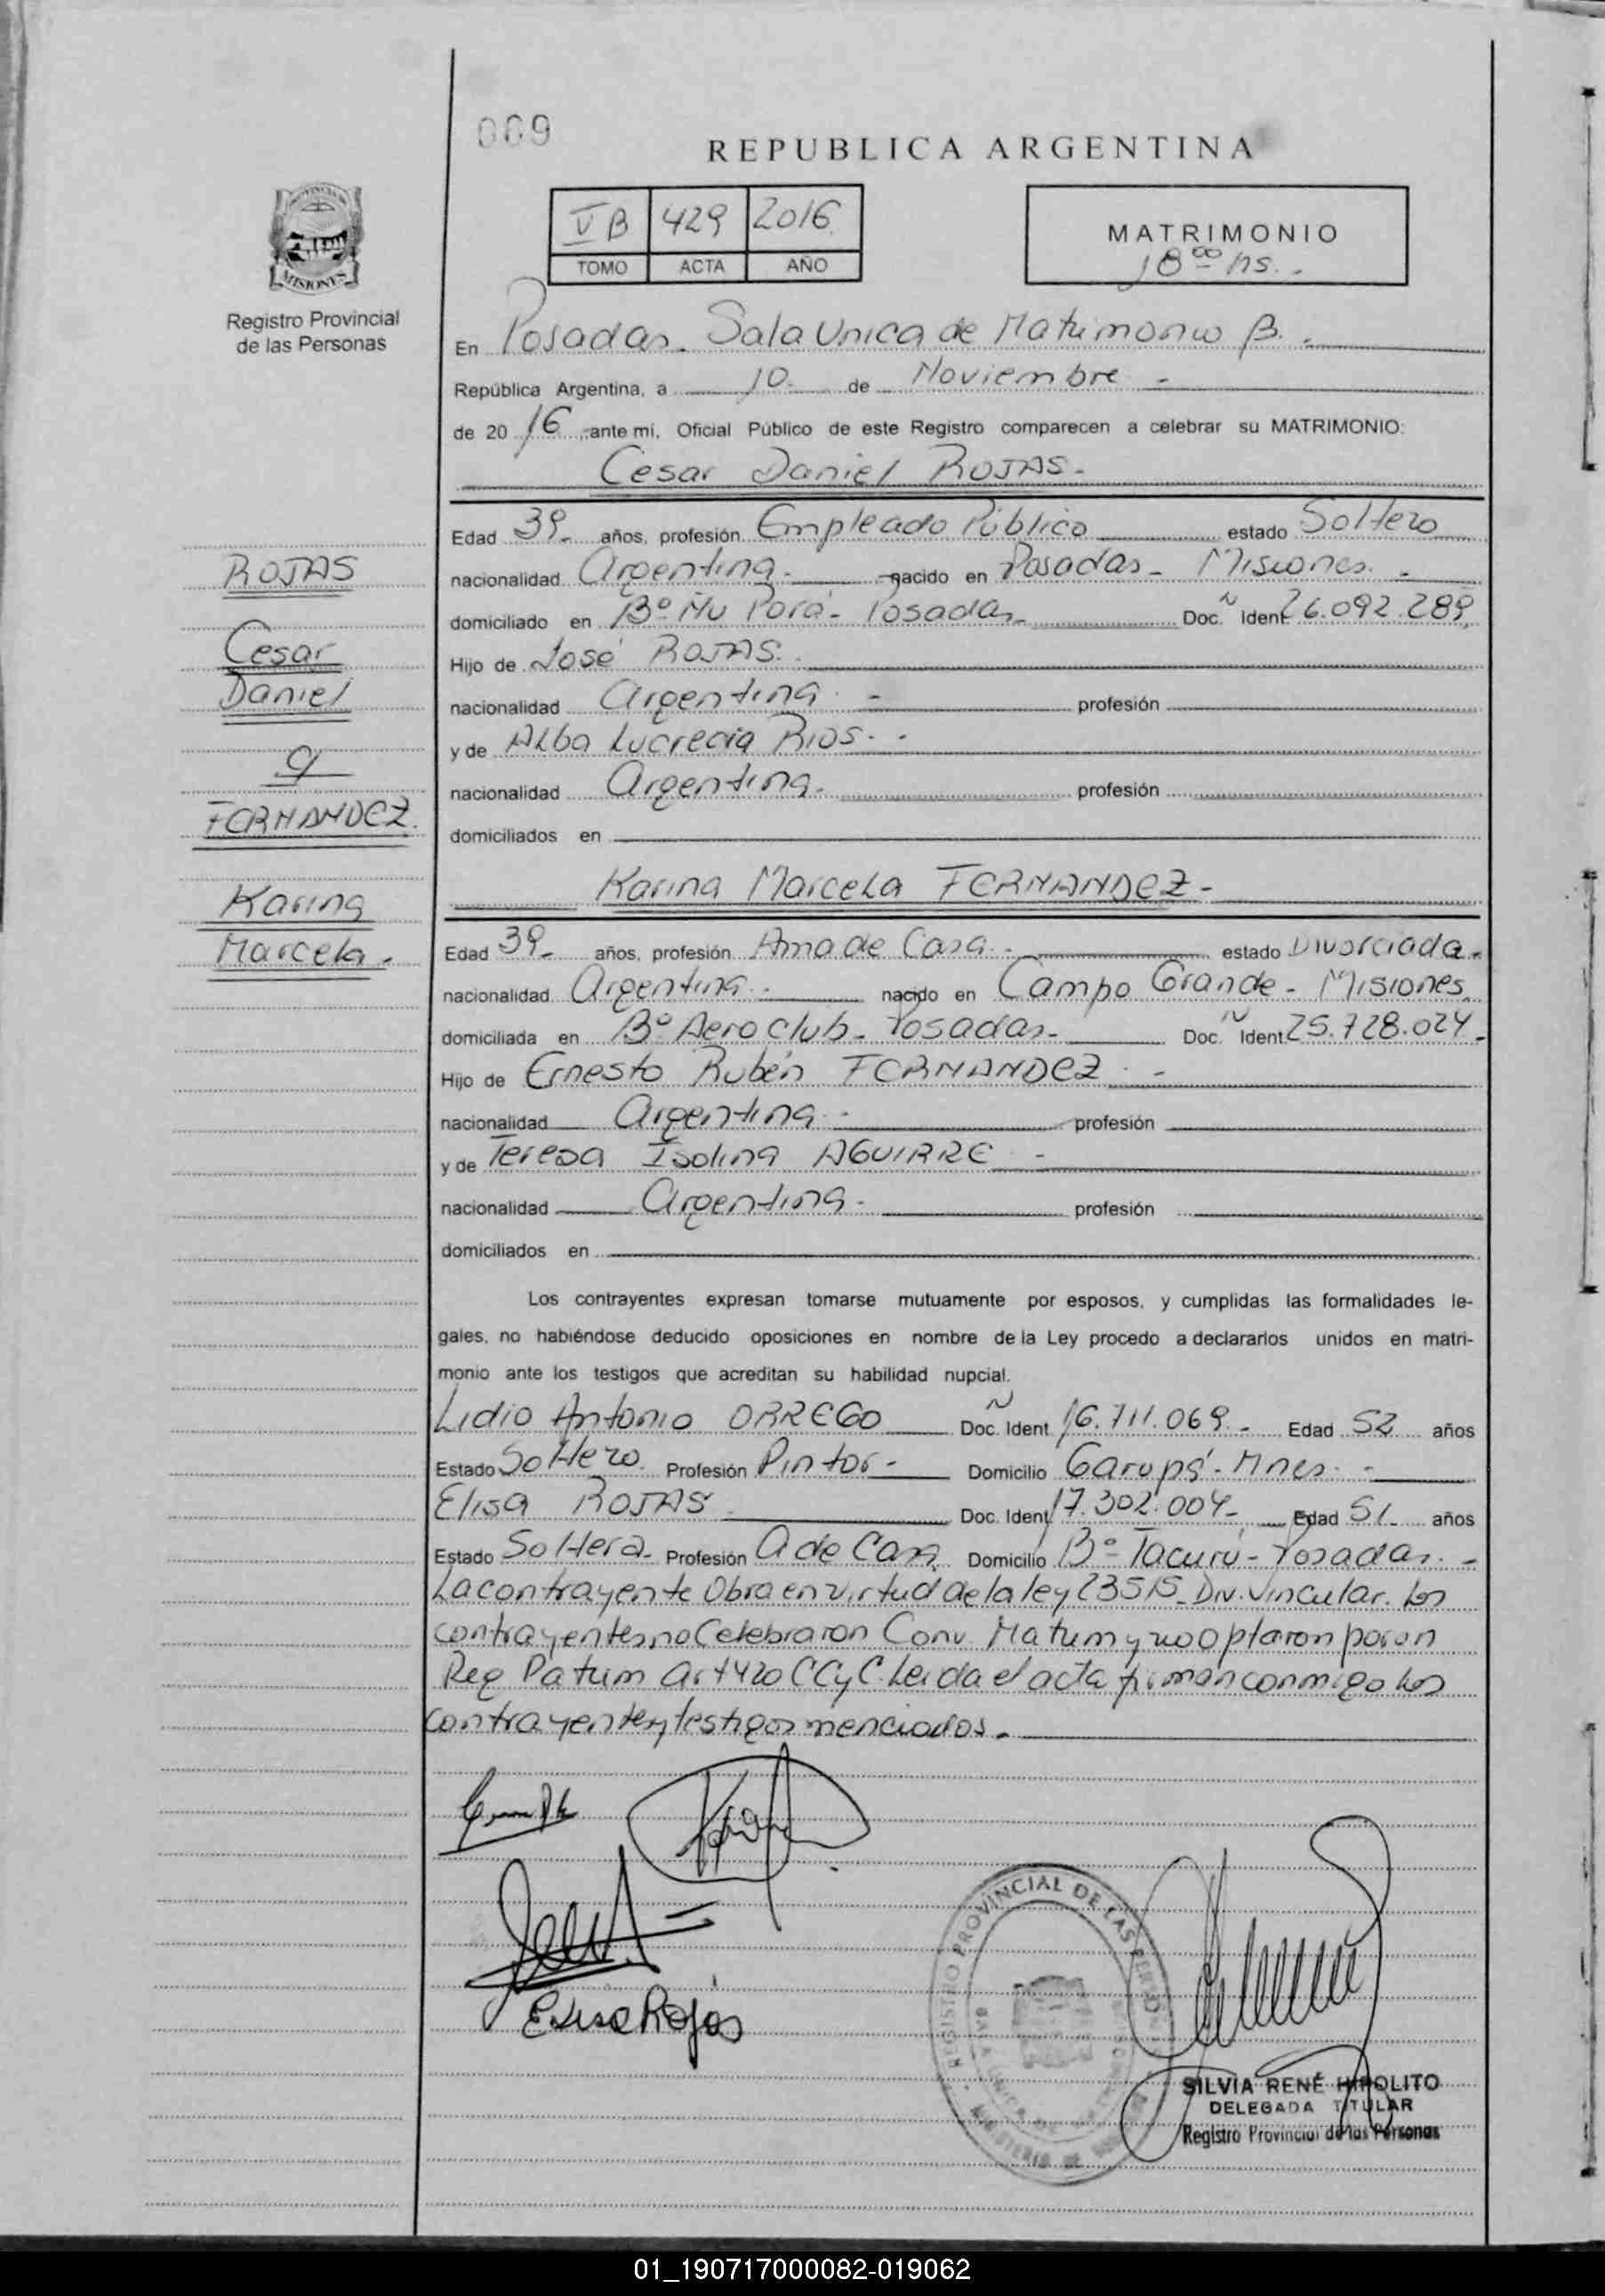 009
REPUBLICA ARGENTINA
V B 429 2016
TOMO ACTA AÑO
MATRIMONIO
18 00 hs.
PROVINCIA DE
MISIONES
Registro Provincial
de las Personas
En Posadas - Sala Unica de Matrimonio B.
República Argentina, a 10 de Noviembre -
de 20 16, ante mi, Oficial Público de este Registro comparecen a celebrar su MATRIMONIO:
Cesar Daniel ROJAS -
Edad 39 - años, profesión Empleado Público estado Soltero
nacionalidad Argentina - nacido en Posadas - Misiones. -
domiciliado en B° Ñu Porá - Posadas - Doc. N Ident 26.092.289
Hijo de José ROJAS.
nacionalidad Argentina - profesión
y de Alba Lucrecia RIOS - .
nacionalidad Argentina. profesión
domiciliados en
Karina Marcela FERNANDEZ -
Edad 39 - años, profesión Ama de Casa - estado Divorciada -
nacionalidad Argentina - nacido en Campo Grande - Misiones
domiciliada en B° Aeroclub - Posadas - Doc. N Ident 25.728.024 -
Hijo de Ernesto Rubén FERNANDEZ . -
nacionalidad Argentina - profesión
y de Teresa Isolina AGUIRRE -
nacionalidad Argentina - profesión
domiciliados en
ROJAS
Cesar
Daniel
y
FERNANDEZ.
Karina
Marcela -
Los contrayentes expresan tomarse mutuamente por esposos, y cumplidas las formalidades le-
gales, no habiéndose deducido oposiciones en nombre de la Ley procedo a declararlos unidos en matri-
monio ante los testigos que acreditan su habilidad nupcial.
Lidio Antonio ORREGO Doc. N Ident 16.711.069 - Edad 52 años
Estado Soltero Profesión Pintor - Domicilio Garupá - Mnes - -
Elisa ROJAS Doc. Ident 17.302.004 - Edad 51 años
Estado Soltera - Profesión A de Casa Domicilio B° Tacurú - Posadas. -
La contrayente Obra en virtud de la ley 23515 - Div. Vincular. los
contrayentes no Celebraron Conv. Matrim y no optaron por un
Reg Patrim Art 420 CCyC. Leida el acta firman conmigo los
contrayentes y testigos mencionados -
Elisa Rojas
REGISTRO PROVINCIAL DE LAS PERSONAS
SILVIA RENÉ HIPOLITO
DELEGADA TITULAR
Registro Provincial de las Personas
01_190717000082-019062